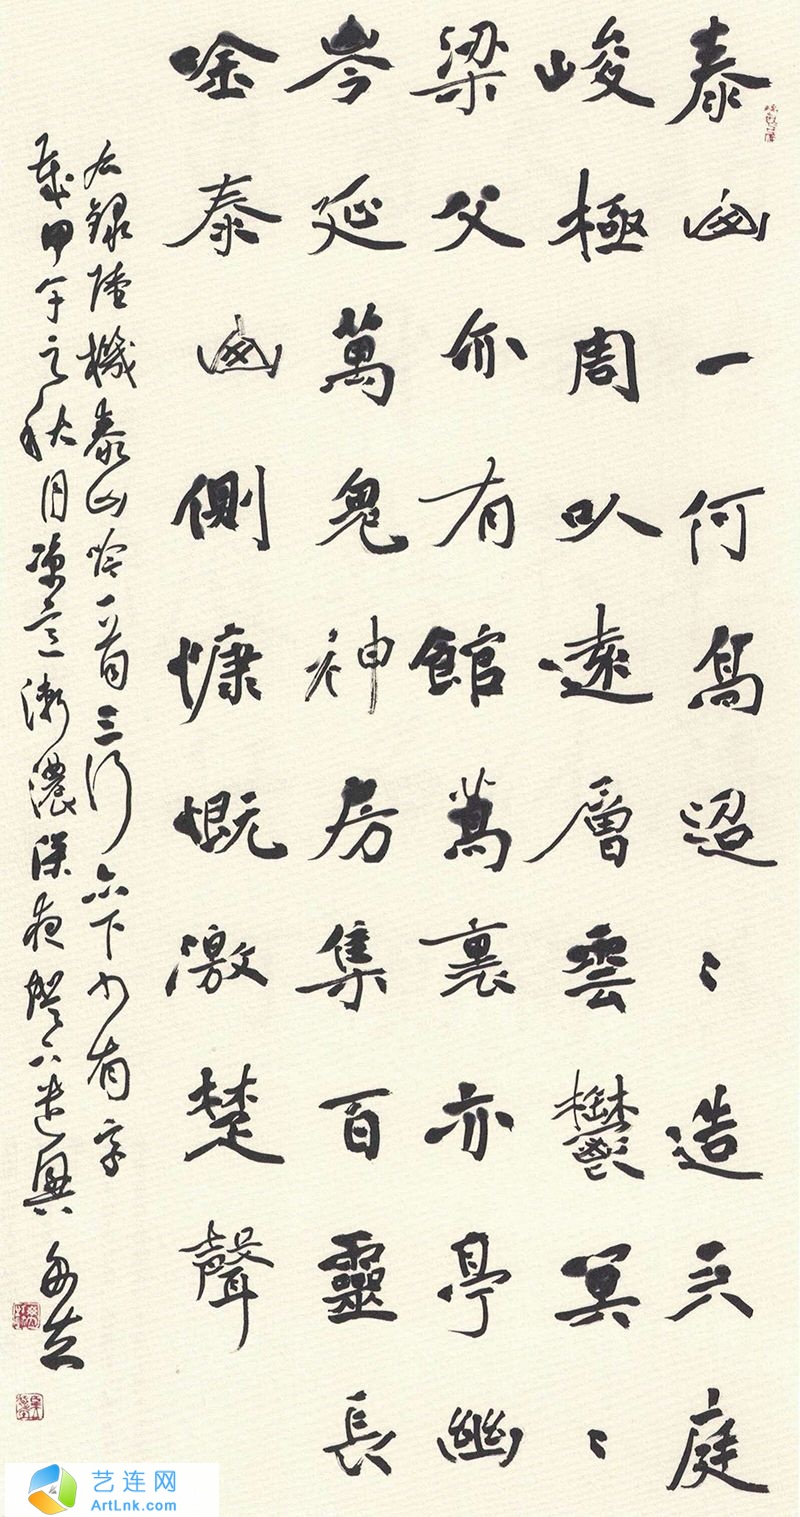 泰山一何高迢〻造天庭
峻極周以遠層雲鬱冥〻
梁父亦有館蒿裏亦亭幽
岑延萬鬼神房集百靈長
唫泰山側慷慨激楚聲
右錄陸機泰山吟一首三行亦下少有字
歲甲午之秋月凉意漸濃深夜燈下遣興
艺连网
ArtLnk.com